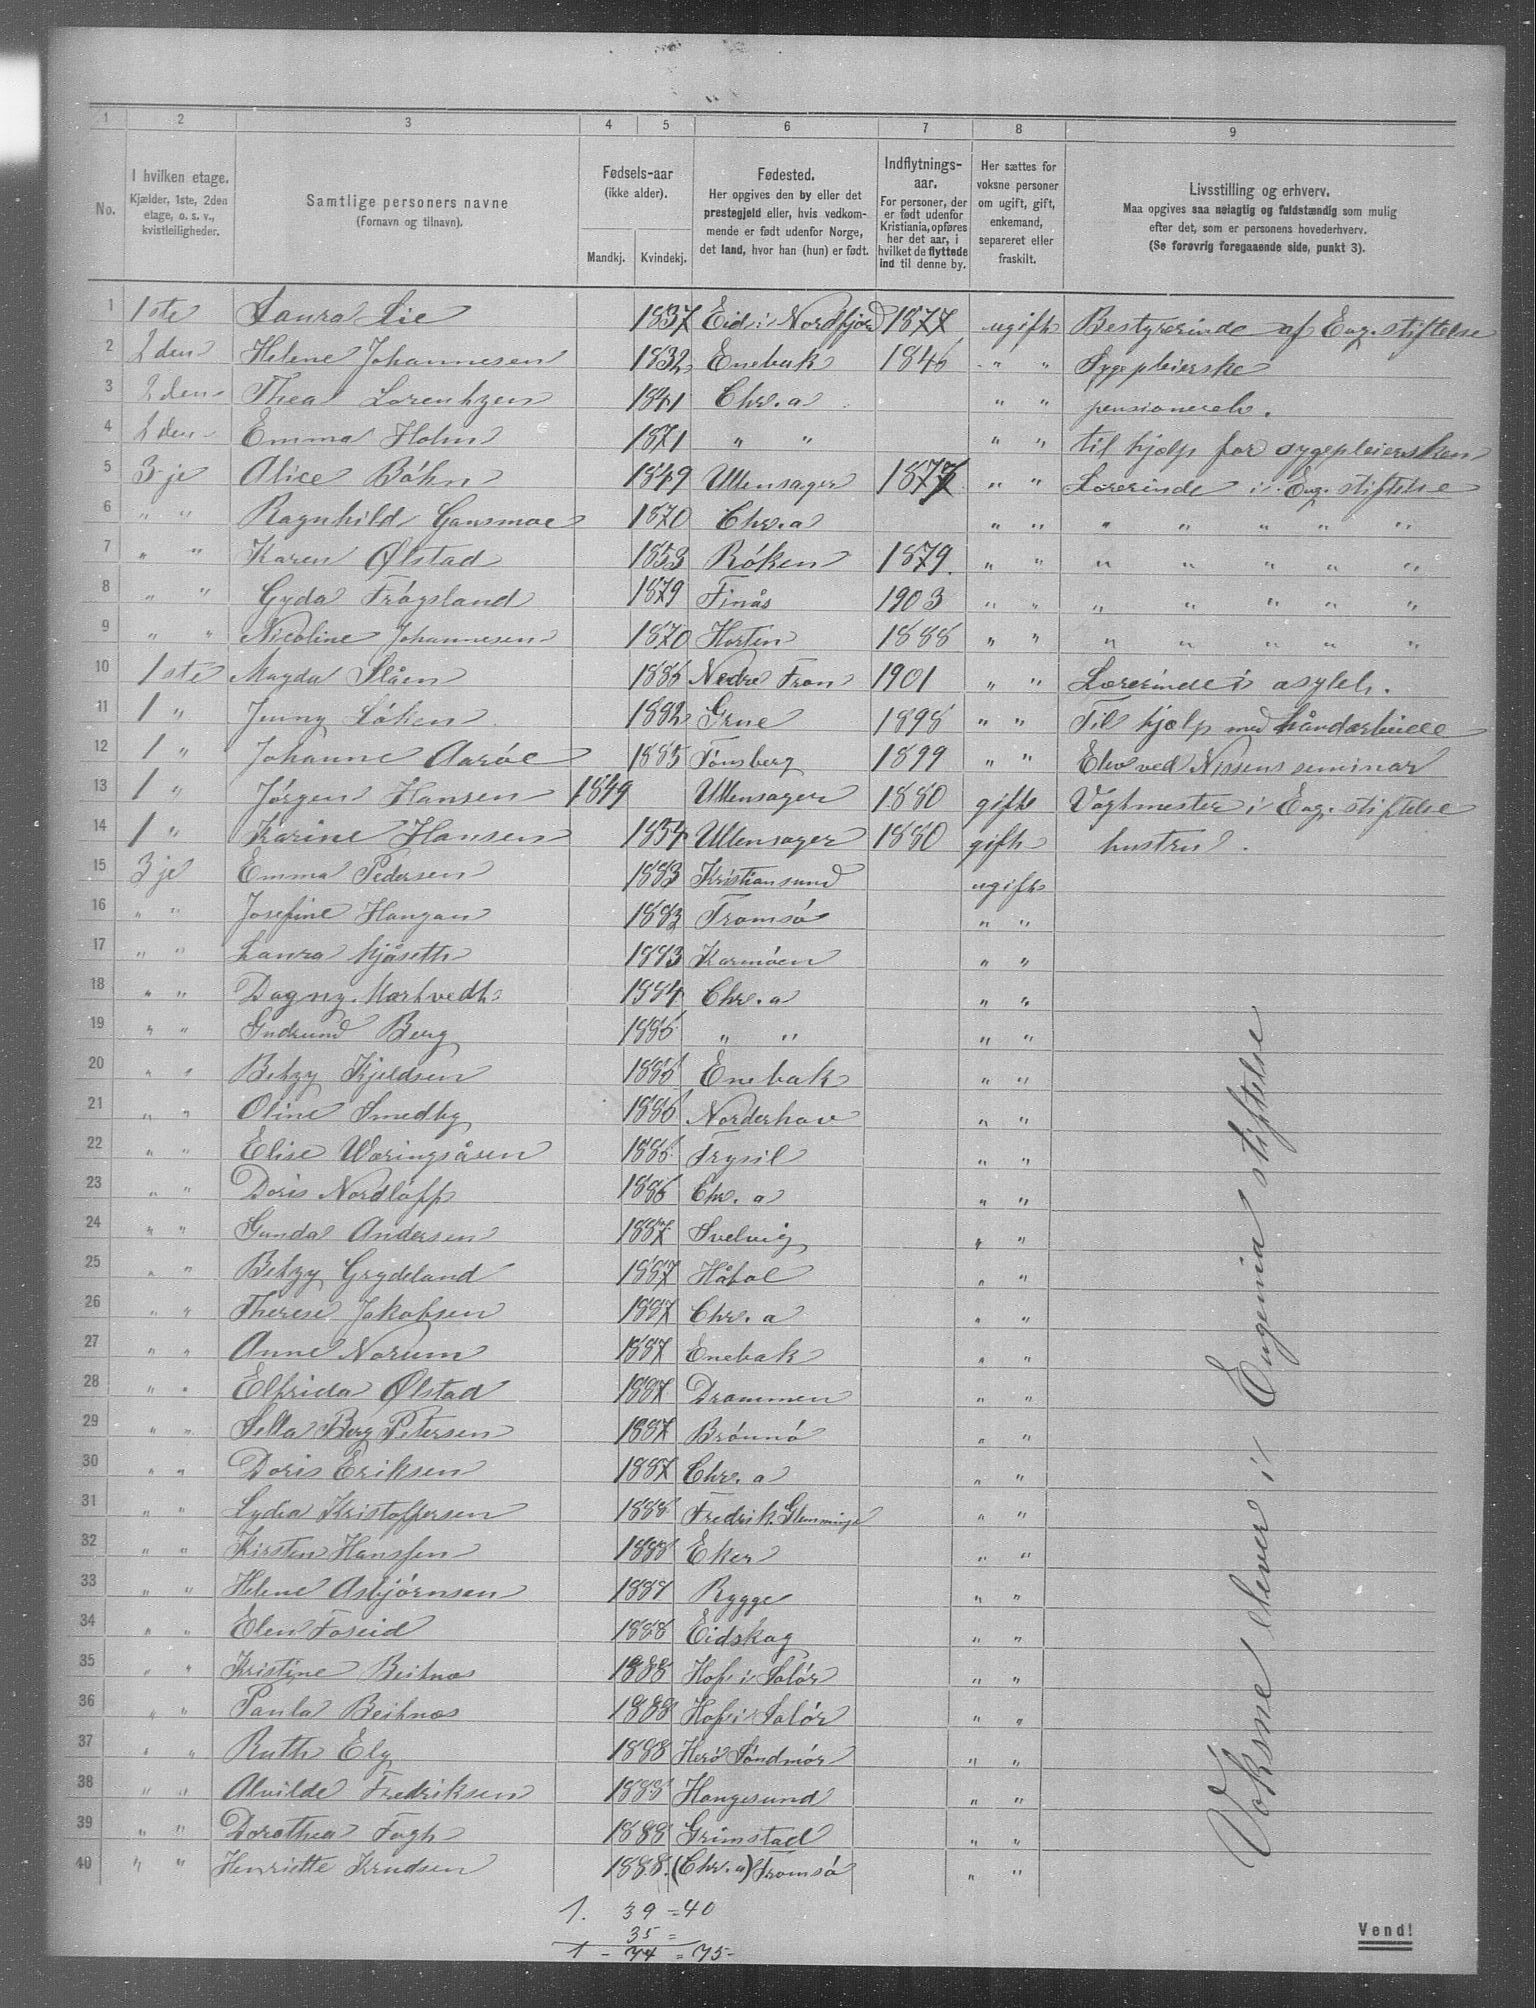 1 2 3 4 5 6 7 8 9
No.
I hvilken etage.
Kjælder, 1ste, 2den
etage, o. s. v.,
kvistleiligheder.
Samtlige personers navne
(Fornavn og tilnavn).
Fødsels-aar
(ikke alder).
Mandkj. Kvindekj.
Fødested.
Her opgives den by eller det
prestegjeld eller, hvis vedkom-
mende er født udenfor Norge,
det land, hvor han (hun) er født.
Indflytnings-
aar.
For personer, der
er født udenfor
Kristiania, opføres
her det aar, i
hvilket de flyttede
ind til denne by.
Her sættes for
voksne personer
om ugift, gift,
enkemand,
separeret eller
fraskilt.
Livsstilling og erhverv.
Maa opgives saa nøiagtig og fuldstændig som mulig
efter det, som er personens hovederhverv.
(Se forøvrig foregaaende side, punkt 3).
1 1ste Laura Lie 1837 Eid i Nordfjord 1877 ugift Bestyrerinde af Eug. stiftelse
2 2den Helene Johannesen 1832 Enebak 1846 " " Sygepleierske
3 2den Thea Lorentzen 1841 Chr.a " " pensioneret.
4 2den Emma Holm 1871 " " " " til hjælp for sygepleiersken
5 3je Alice Böhn 1849 Ullensager 1877 " " Lærerinde i Eug. stiftelse
6 " " Ragnhild Gansmoe 1870 Chr.a " " " " " " "
7 " " Karen Ølstad 1853 Röken 1879. " " " " " " "
8 " " Gyda Frögsland 1879 Finås 1903 " " " " " " "
9 " " Nicoline Johannesen 1870 Horten 1888 " " " " " " "
10 1ste Magda Slåen 1885 Nedre Fron 1901 " " Lærerinde i asylet.
11 1 " Jenny Löken 1882 Grue 1898 " " Til hjælp med håndarbeide
12 1 " Johanne Aaröe 1885 Tønsberg 1899 " " Elev ved Nissens seminar
13 1 " Jörgen Hansen 1849 Ullensager 1880 gift Vagtmester i Eug. stiftelse
14 1 " Karine Hansen 1854 Ullensager 1880 gift hustru.
15 3je Emma Pedersen 1883 Kristiansund ugift
16 " " Josefine Haugan 1883 Tromsö " "
17 " " Laura Kjöseth 1883 Karmöen " "
18 " " Dagny Markvedt 1884 Chr.a " "
19 " " Gudrund Berg 1886 " " " "
20 " " Betzy Kjeldsen 1886 Enebak " "
21 " " Oline Smedby 1886 Norderhov " "
22 " " Elise Wæringsåsen 1886 Trysil " "
23 " " Doris Nordlöff 1886 Chr.a " "
24 " " Gunda Andersen 1887 Svelvig " "
25 " " Betzy Grydeland 1887 Håböl " "
26 " " Therese Jakobsen 1887 Chr.a " "
27 " " Anne Norum 1887 Enebak " "
28 " " Elfrida Ølstad 1887 Drammen " "
29 " " Sella Berg Petersen 1887 Brönnö " "
30 " " Doris Eriksen 1887 Chr.a " "
31 " " Lydia Kristoffersen 1888 Fredrik. Glemminge " "
32 " " Kirsten Hanssen 1888 Eker " "
33 " " Helene Asbjørnsen 1887 Rygge " "
34 " " Elen Foseid 1888 Eidskog " "
35 " " Kristine Beitnæs 1888 Hof i Solör " "
36 " " Paula Beitnæs 1888 Hof i Solör " "
37 " " Ruth Ely 1888 Herö Söndmör " "
38 " " Alvilde Fredriksen 1888 Haugesund " "
39 " " Dorothea Fogh 1888 Grimstad " "
40 " " Henriette Knudsen 1888. (Chr.a) Tromsö " "
Voksne elever i Eugenia stiftelse
1. 39 = 40
35 =
1 - 74 = 75 -
Vend!